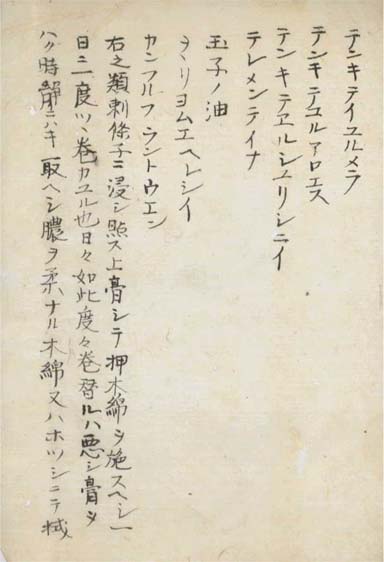 テンキテイユルメラ
テンキテユルアロエス
テンキテヱルシユリシニイ
テレメンテイナ
玉子ノ油
ヲヽリヨムエヘレシイ
カンフルフラントウエン
右之類刺條子ニ浸シ點ス上膏シテ押木綿ヲ施スヘシ一
日ニ一度ツヽ巻カユル也日々如此度々巻替ルハ悪シ膏ヲ
ハク時静ニハキ取ヘシ膿ヲ柔ナル木綿又ハホツシニテ拭